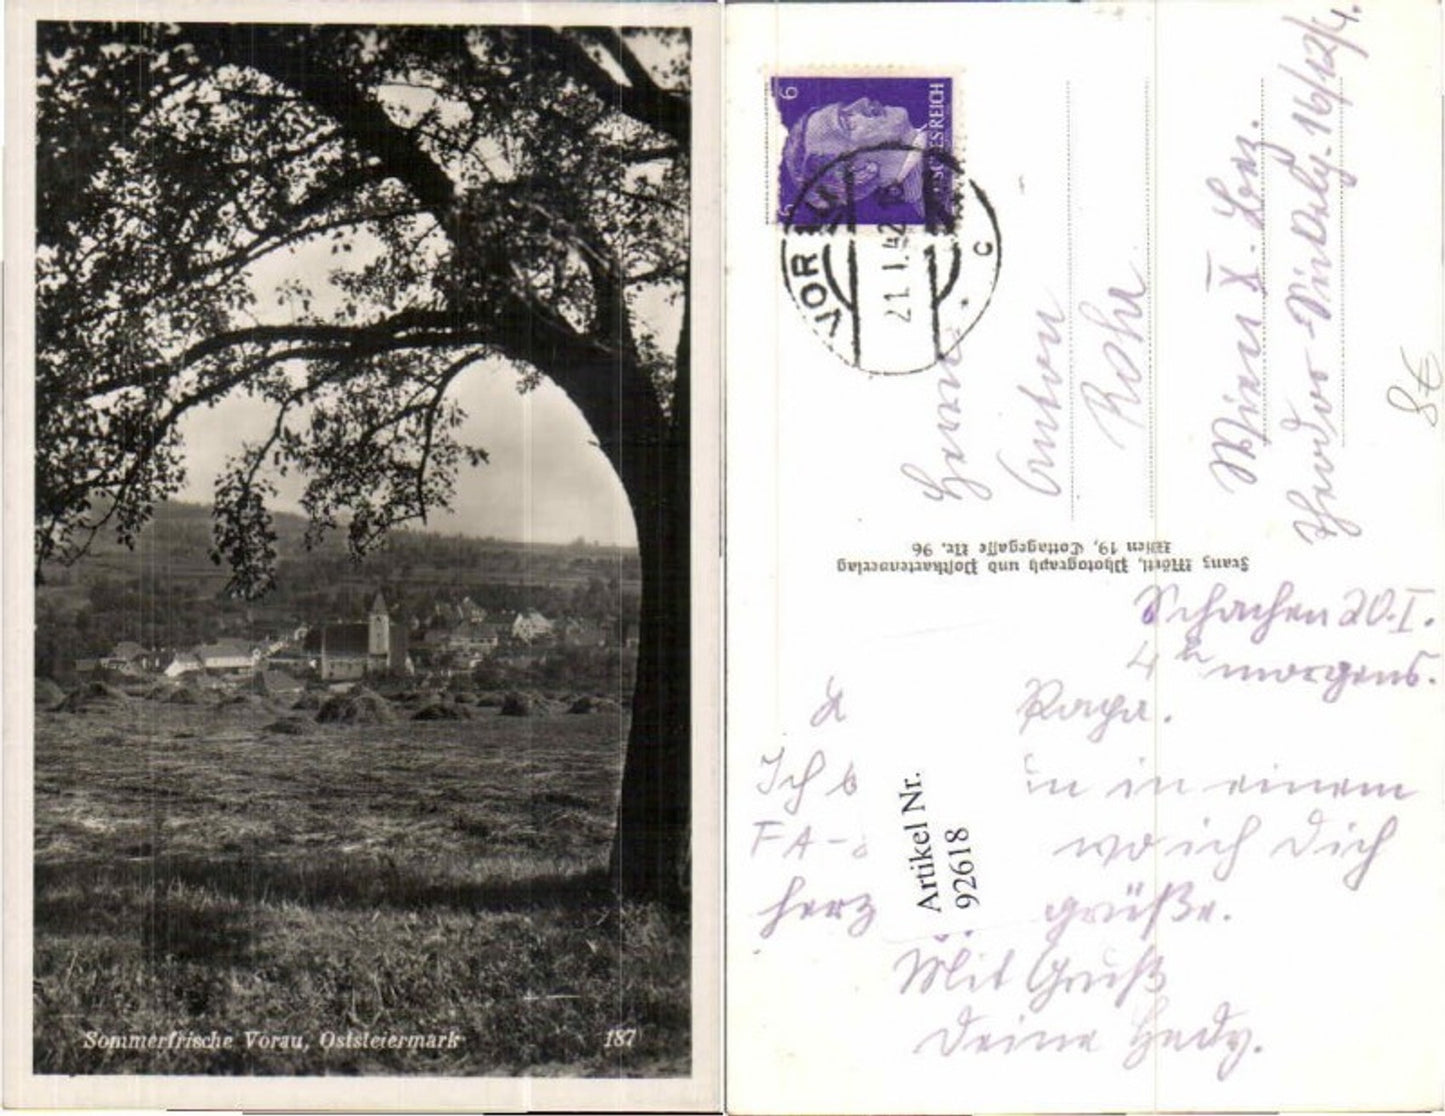 Sommerfrische Vorau, Oststeiermark 187
6
DEUTSCHES REICH
VORAU
21.1.42
c
Herrn
Anton
Rohr
Wien X.
16/12/4.
8€
Franz Mörtl, Photograph und Postkartenverlag
Wien 19, Cottagegasse Nr. 96
Schachen 20.I.
4 h morgens.
Papa.
Ich b in in einem
FA- wo ich Dich
herz grüße.
Artikel Nr.
92618
Mit Gruß
Deine Hedy.